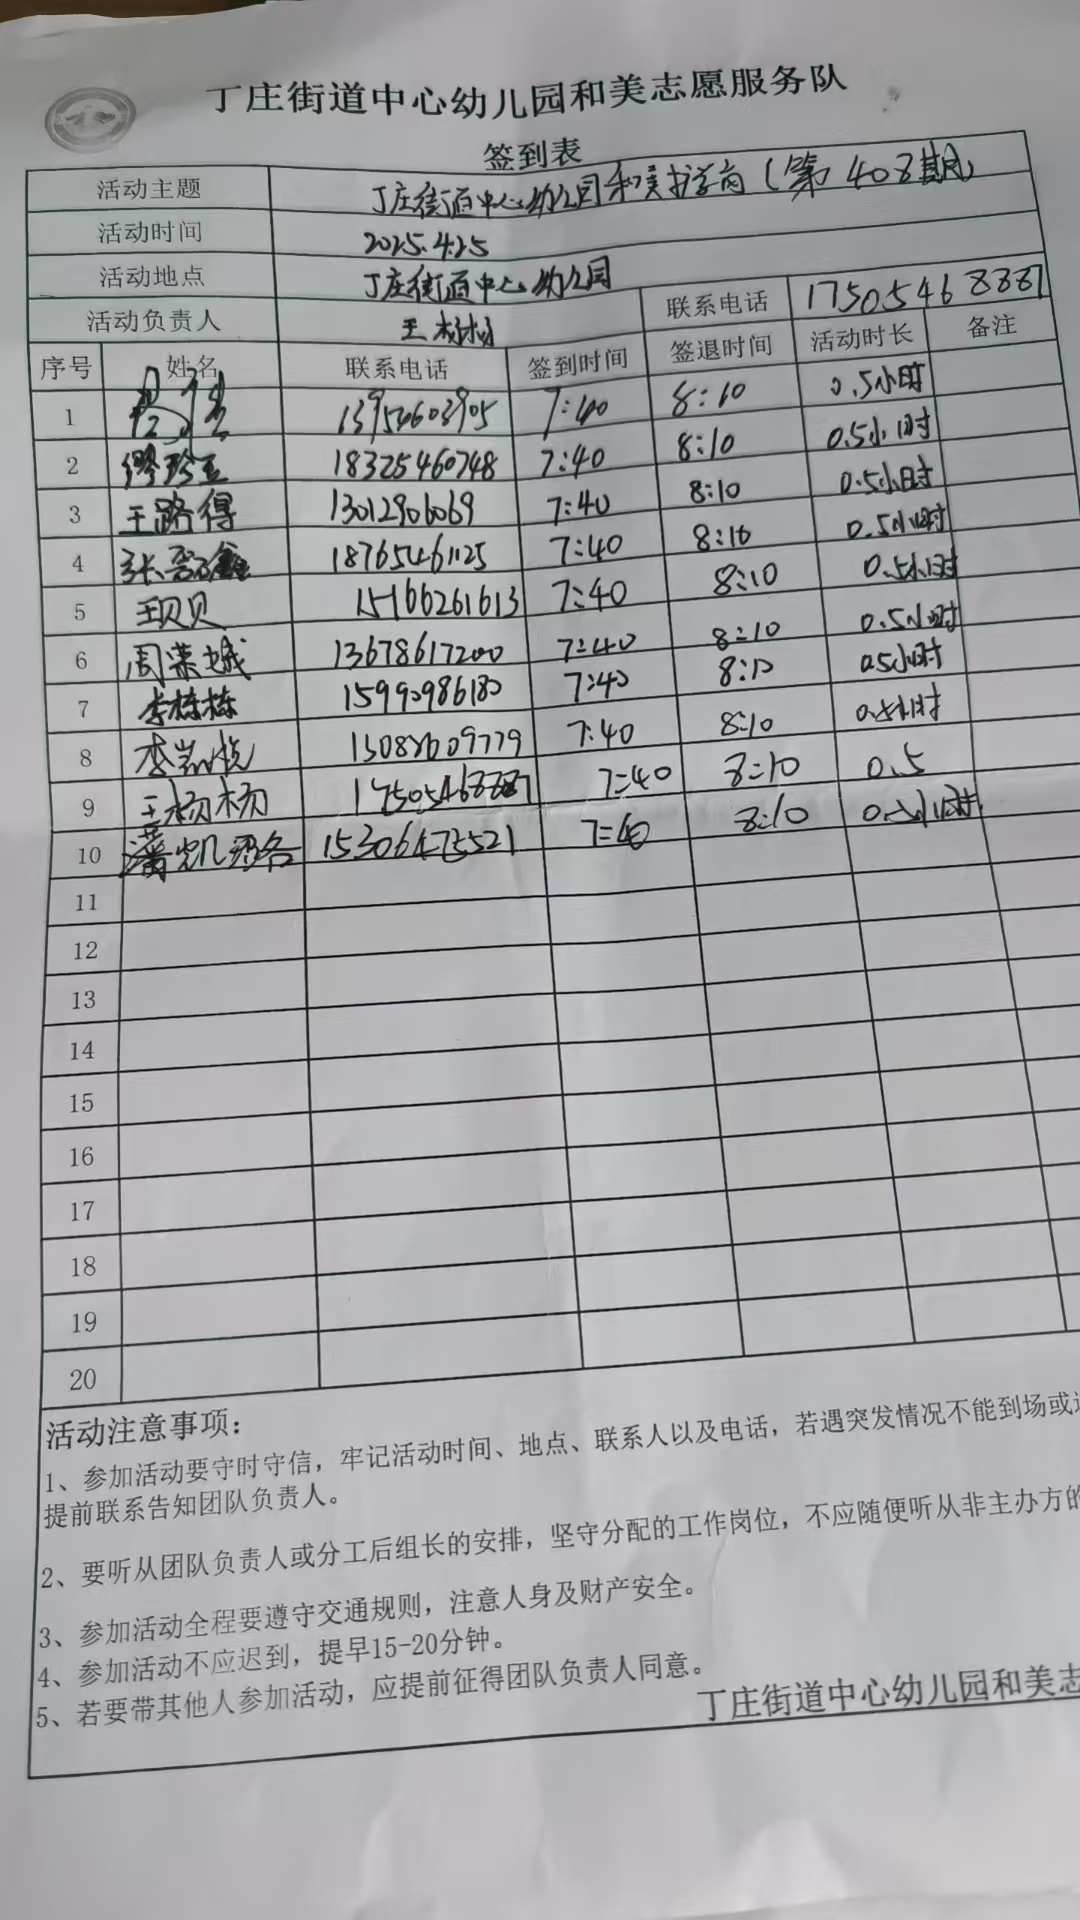 丁庄街道中心幼儿园和美志愿服务队
签到表
活动主题 丁庄街道中心幼儿园和美护学岗(第408期)
活动时间 2025.4.25
活动地点 丁庄街道中心幼儿园
活动负责人 王杨杨 联系电话 17505468887
序号 姓名 联系电话 签到时间 签退时间 活动时长 备注
1 13954603905 7:40 8:10 0.5小时
2 缪珍玉 18325460748 7:40 8:10 0.5小时
3 王路得 13012906069 7:40 8:10 0.5小时
4 张 18765461125 7:40 8:10 0.5小时
5 王贝贝 15166261613 7:40 8:10 0.5小时
6 周荣城 13678617200 7:40 8:10 0.5小时
7 李栋栋 15990986180 7:40 8:10 0.5小时
8 李悦 7:40 8:10 0.5小时
9 王杨杨 17505468887 7:40 8:10 0.5
10 15306473521 7:40 8:10 0.5小时
11
12
13
14
15
16
17
18
19
20
活动注意事项:
1、参加活动要守时守信,牢记活动时间、地点、联系人以及电话,若遇突发情况不能到场或
提前联系告知团队负责人。
2、要听从团队负责人或分工后组长的安排,坚守分配的工作岗位,不应随便听从非主办方的
3、参加活动全程要遵守交通规则,注意人身及财产安全。
4、参加活动不应迟到,提早15-20分钟。
5、若要带其他人参加活动,应提前征得团队负责人同意。
丁庄街道中心幼儿园和美志